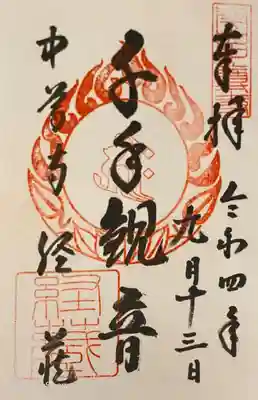 奉拝
令和四年
九月十三日
千手観音
中尊寺経蔵
経蔵